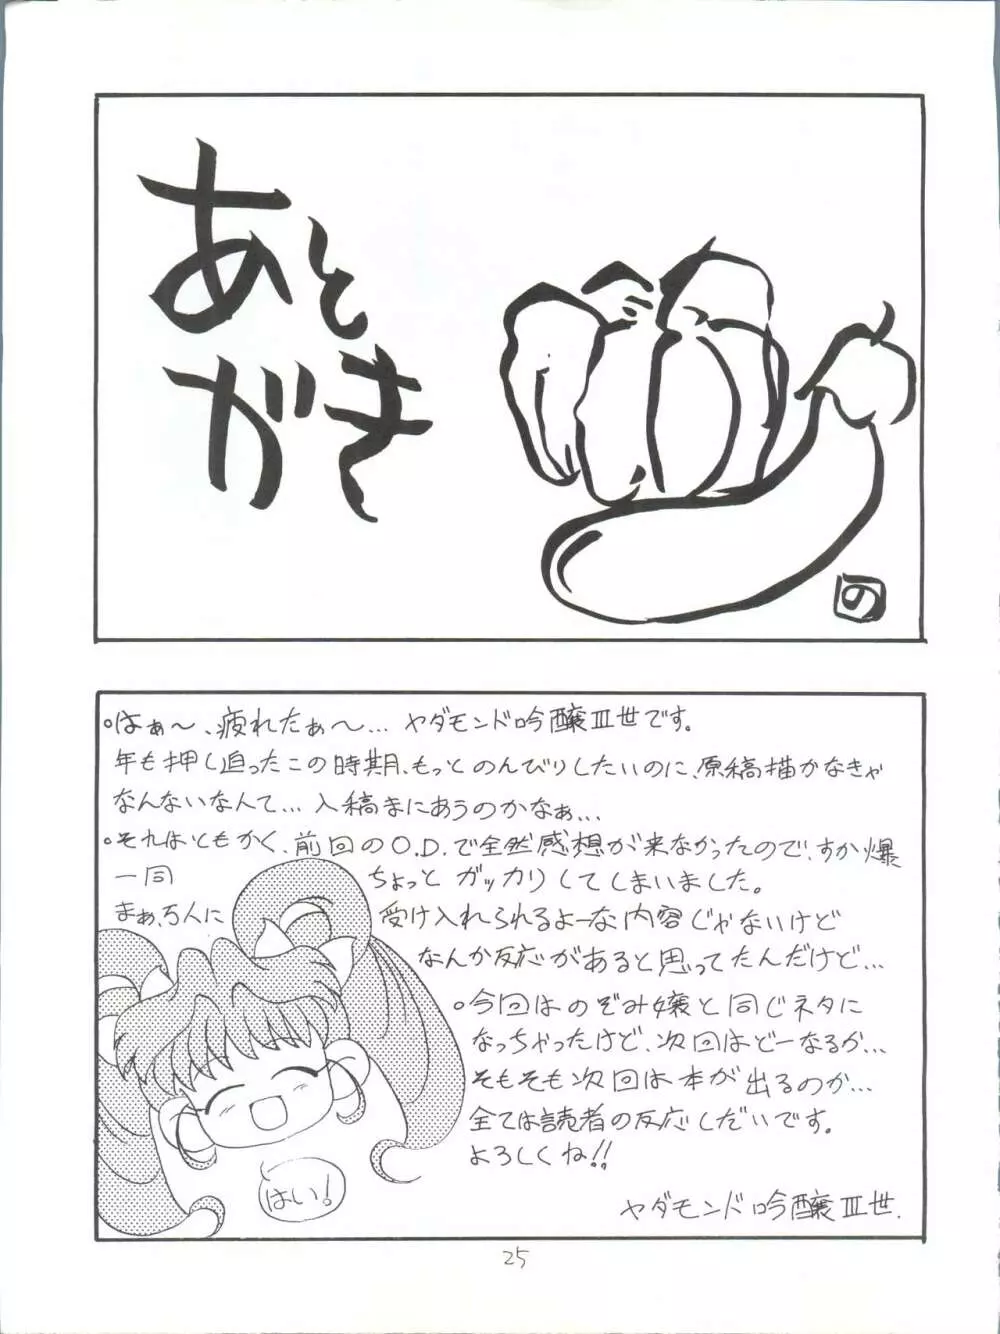 あと
がき
の
○はぁ〜、疲れたぁ〜… ヤダモンド吟醸Ⅲ世です。
年も押し迫ったこの時期、もっとのんびりしたいのに、原稿描かなきゃ
なんないなんて… 入稿まにあうのかなぁ…
○それはともかく、前回のO.D.で全然感想が来なかったので、すか爆
一同 ちょっとガッカリしてしまいました。
まぁ、万人に 受け入れられるよーな内容じゃないけど
なんか反応があると思ってたんだけど…
○今回はのぞみ嬢と同じネタに
なっちゃったけど、次回はどーなるか…
そもそも次回は本が出るのか…
全ては読者の反応しだいです。
よろしくね!!
はい!
ヤダモンド吟醸Ⅲ世.
25